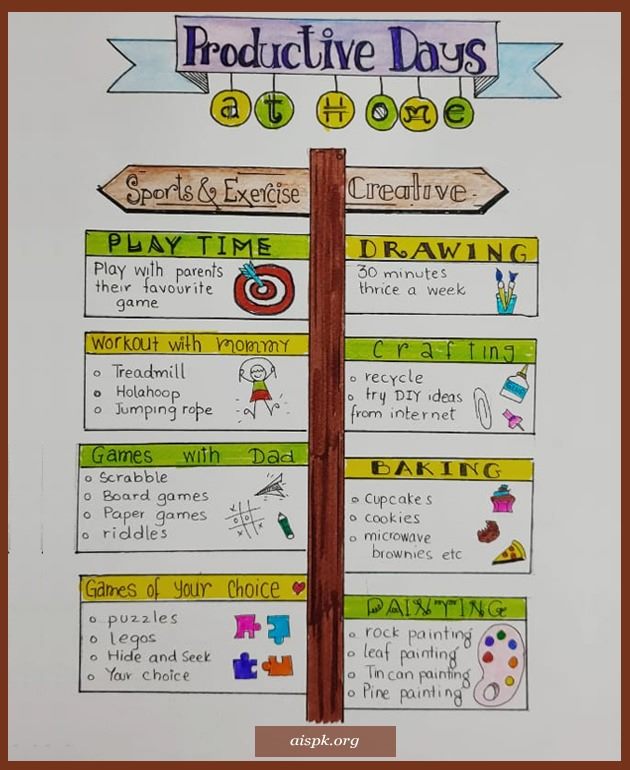 Productive Days
at Home
Sports & Exercise
Creative
PLAY TIME
Play with parents
their favourite
game
Workout with mommy
Treadmill
Holahoop
Jumping rope
Games with Dad
Scrabble
Board games
Paper games
riddles
Games of your choice
puzzles
legos
Hide and Seek
Your choice
DRAWING
30 minutes
thrice a week
Crafting
recycle
try DIY ideas
from internet
BAKING
cupcakes
cookies
microwave
brownies etc
PAINTING
rock painting
leaf painting
Tin can painting
Pine painting
aispk.org